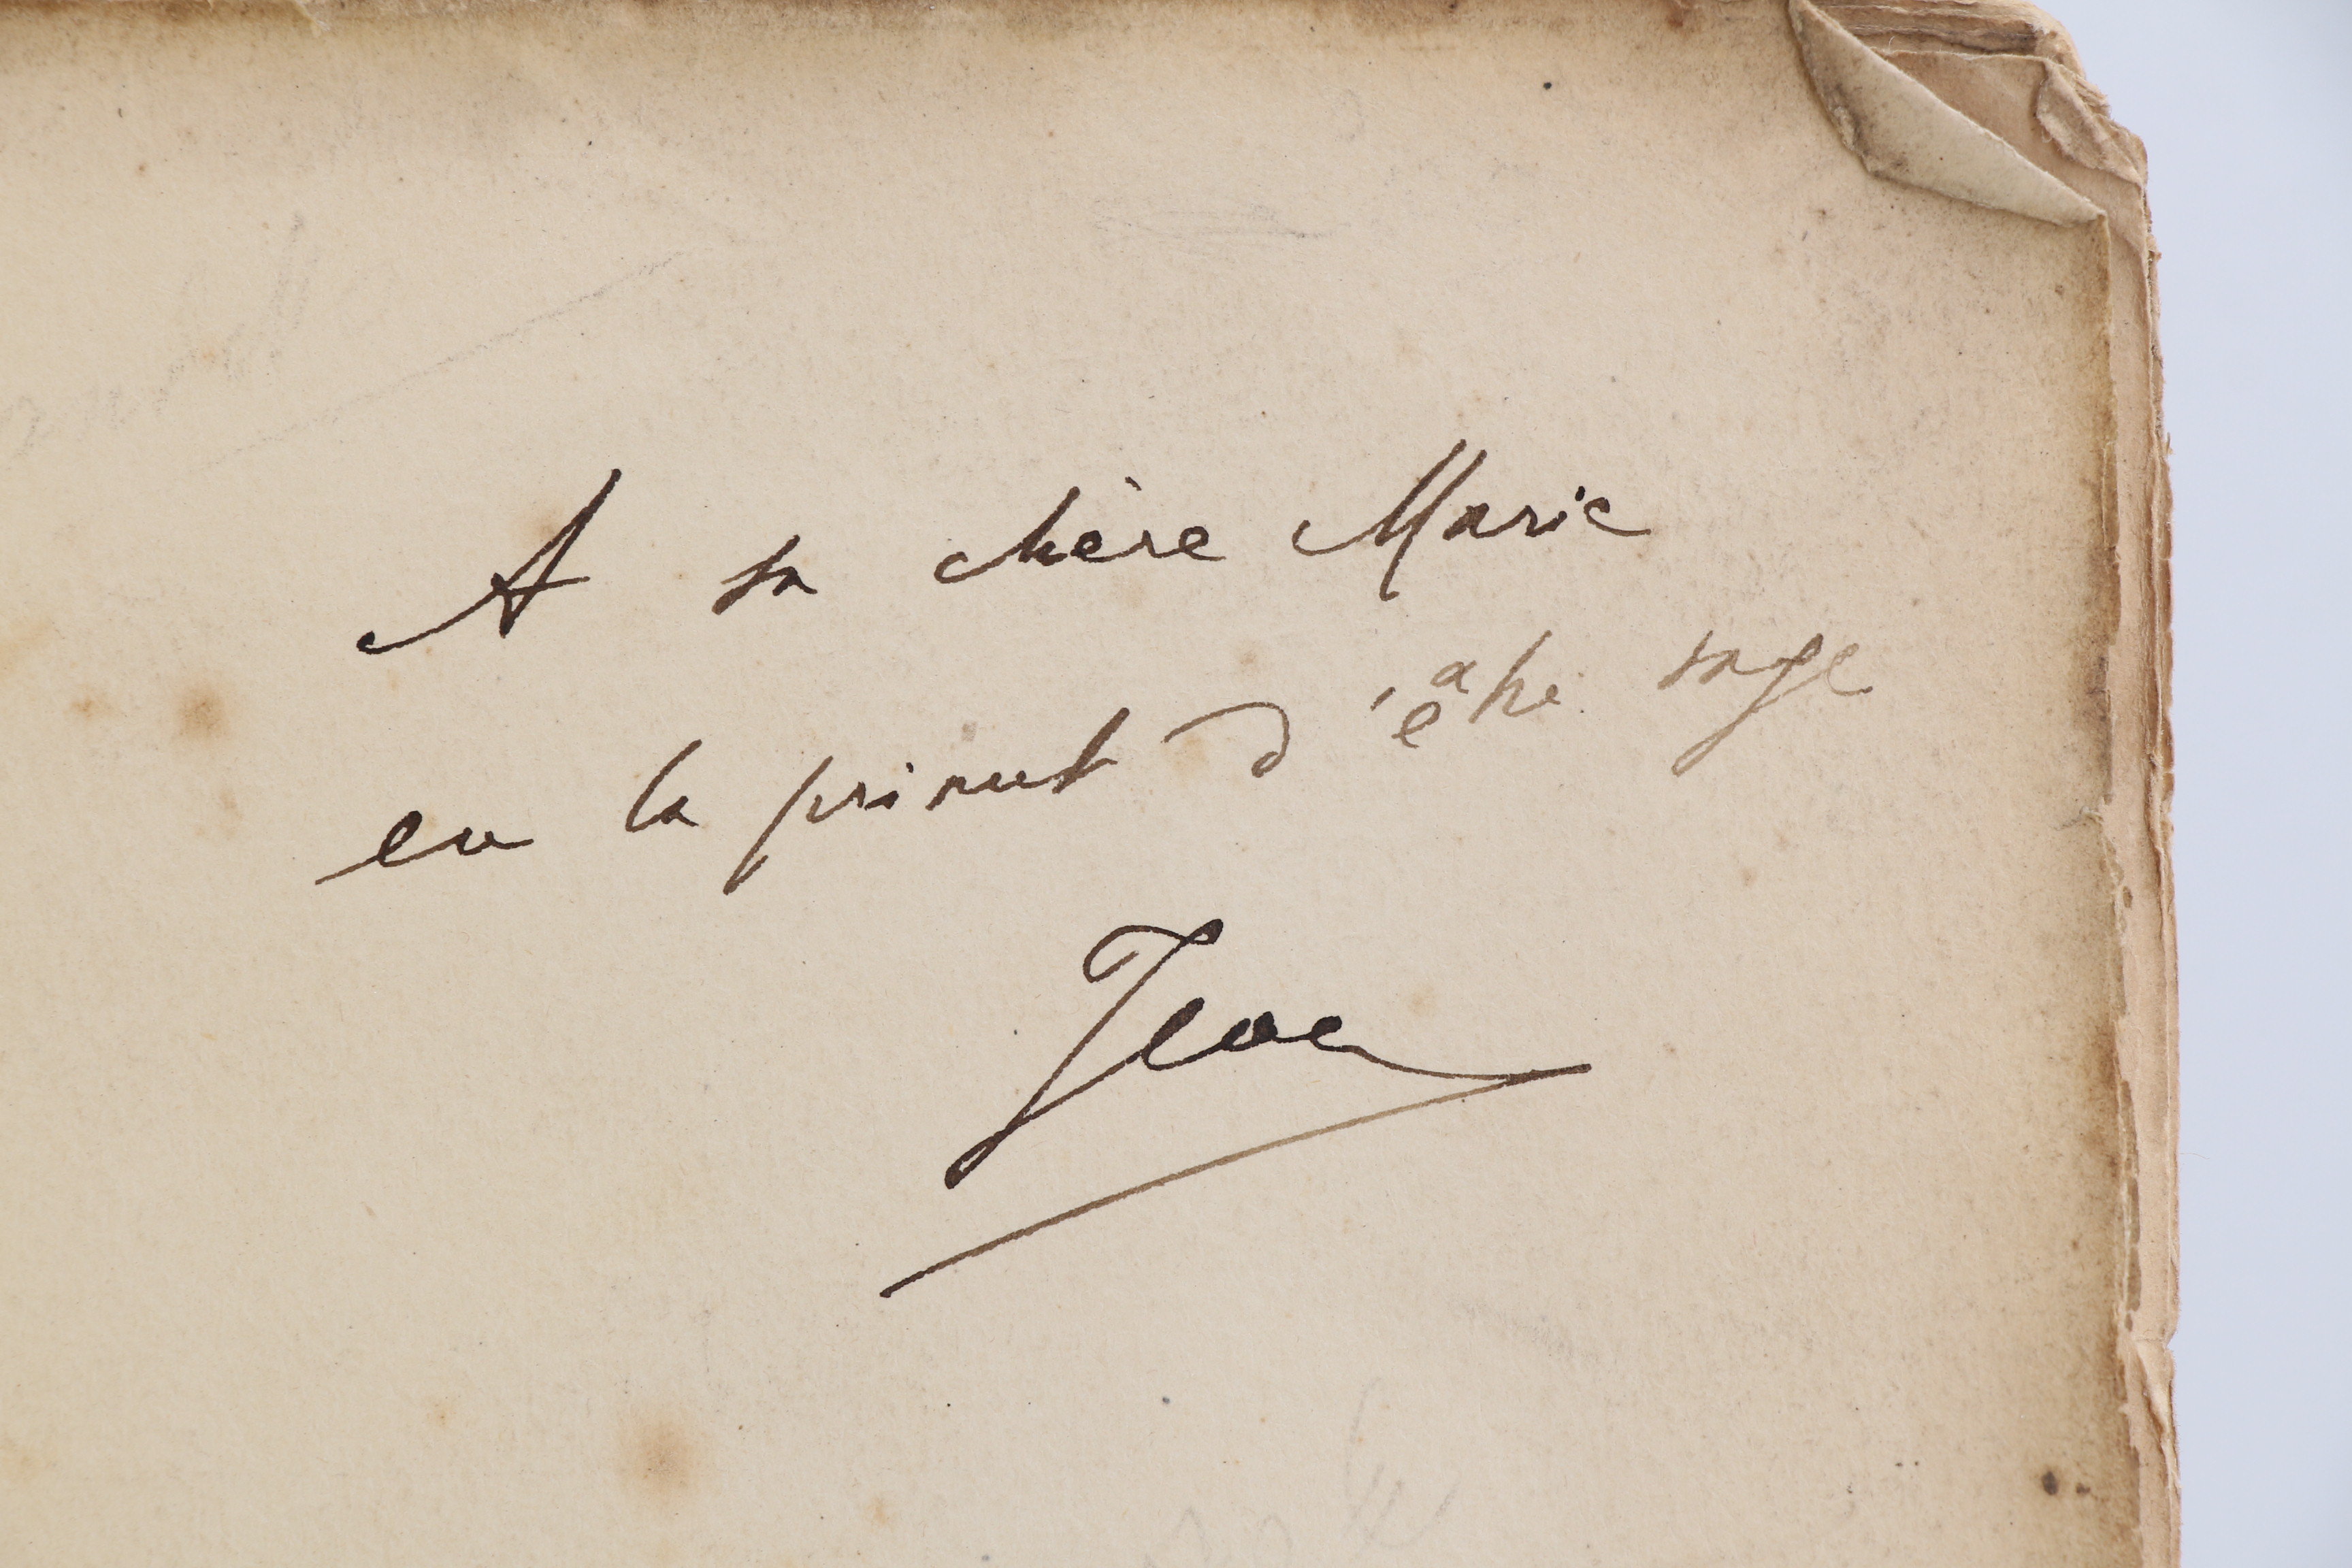 A sa chère Marie
en la priant d'être sage
Jean